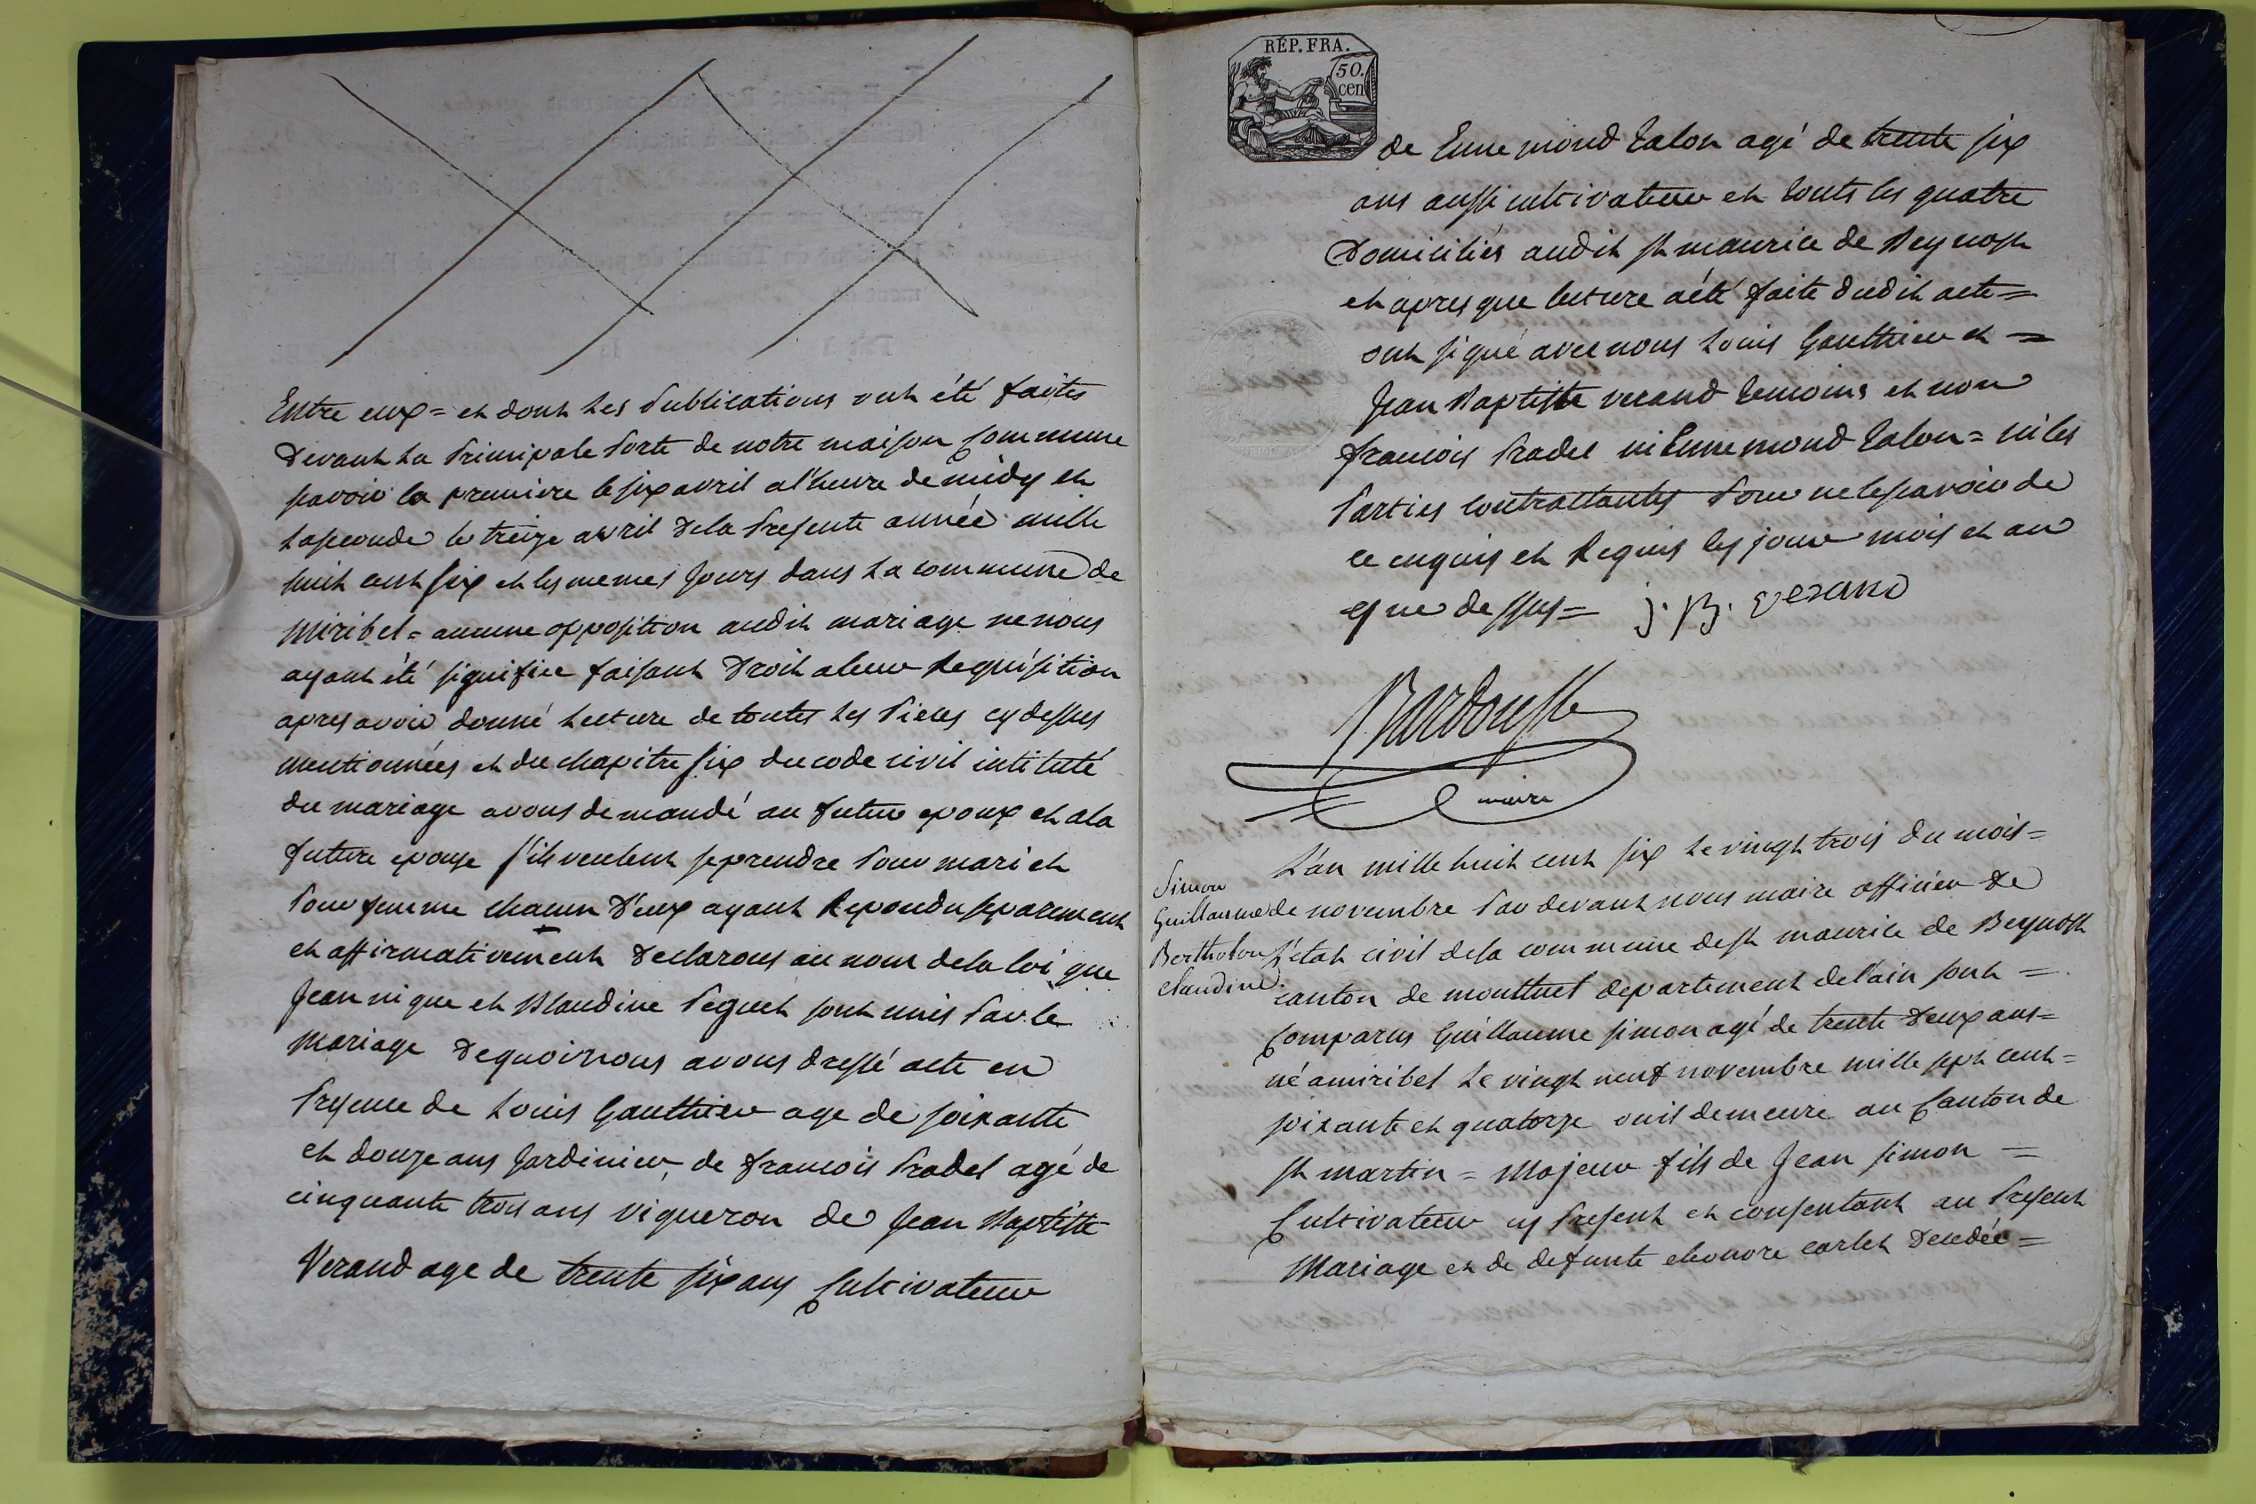 Entre eux = et dont les Publications ont été faites
Devant La Principale Porte de notre maison Commune
savoir la premiere le six avril a l'heure de midy et
la seconde le treize avril de la Presente année mille
huit cent six et les memes Jours dans La commune de
Miribel = aucune opposition audit mariage ne nous
ayant été signifiée faisant Droit a leur Requisition
apres avoir donné Lecture de toutes Les Pieces cy dessus
mentionnées et du chapitre six du code civil intitulé
du mariage avons demandé au futur epoux et a la
future epouse s'ils veulent se prendre Pour mari et
Pour femme chacun D'eux ayant Repondu separement
et affirmativement Declarons au nom de la loi que
Jean nique et Blandine Peguet sont unis Par le
Mariage De quoi nous avons dressé acte en
Presence de Louis Gauthier age de soixante
et douze ans Jardinier, de francois Pradel agé de
cinquante trois ans vigneron de Jean Baptiste
Verand age de trente six ans Cultivateur
RÉP. FRA.
50.
cen
de Ennemond Talon agé de trente six
ans aussi cultivateur et touts les quatre
Domiciliés audit st maurice de Beynost
et apres que lecture a été faite dudit acte =
ont signé avec nous Louis Gauthier et =
Jean Baptiste verand temoins et non
francois Pradel ni Ennemond Talon = ni les
Parties Contractantes Pour ne le savoir de
ce enquis et Requis les jour mois et an
que dessus = j. B. verand
Bardousse
maire
Simon
Guillaume
Bertholon
claudine.
L'an mille huit cent six Le vingt trois du mois =
de novembre Par devant nous maire officier de
l'état civil de la commune de st maurice de Beynost
canton de montluel departement de l'ain sont =
Comparus Guillaume simon agé de trente Deux ans =
né a miribel Le vingt neuf novembre mille sept cent =
soixante et quatorze ou il demeure au Canton de
st martin = Majeur fils de Jean simon =
Cultivateur cy Present et consentant au Present
Mariage et de defunte eleonore carlet Decedée =